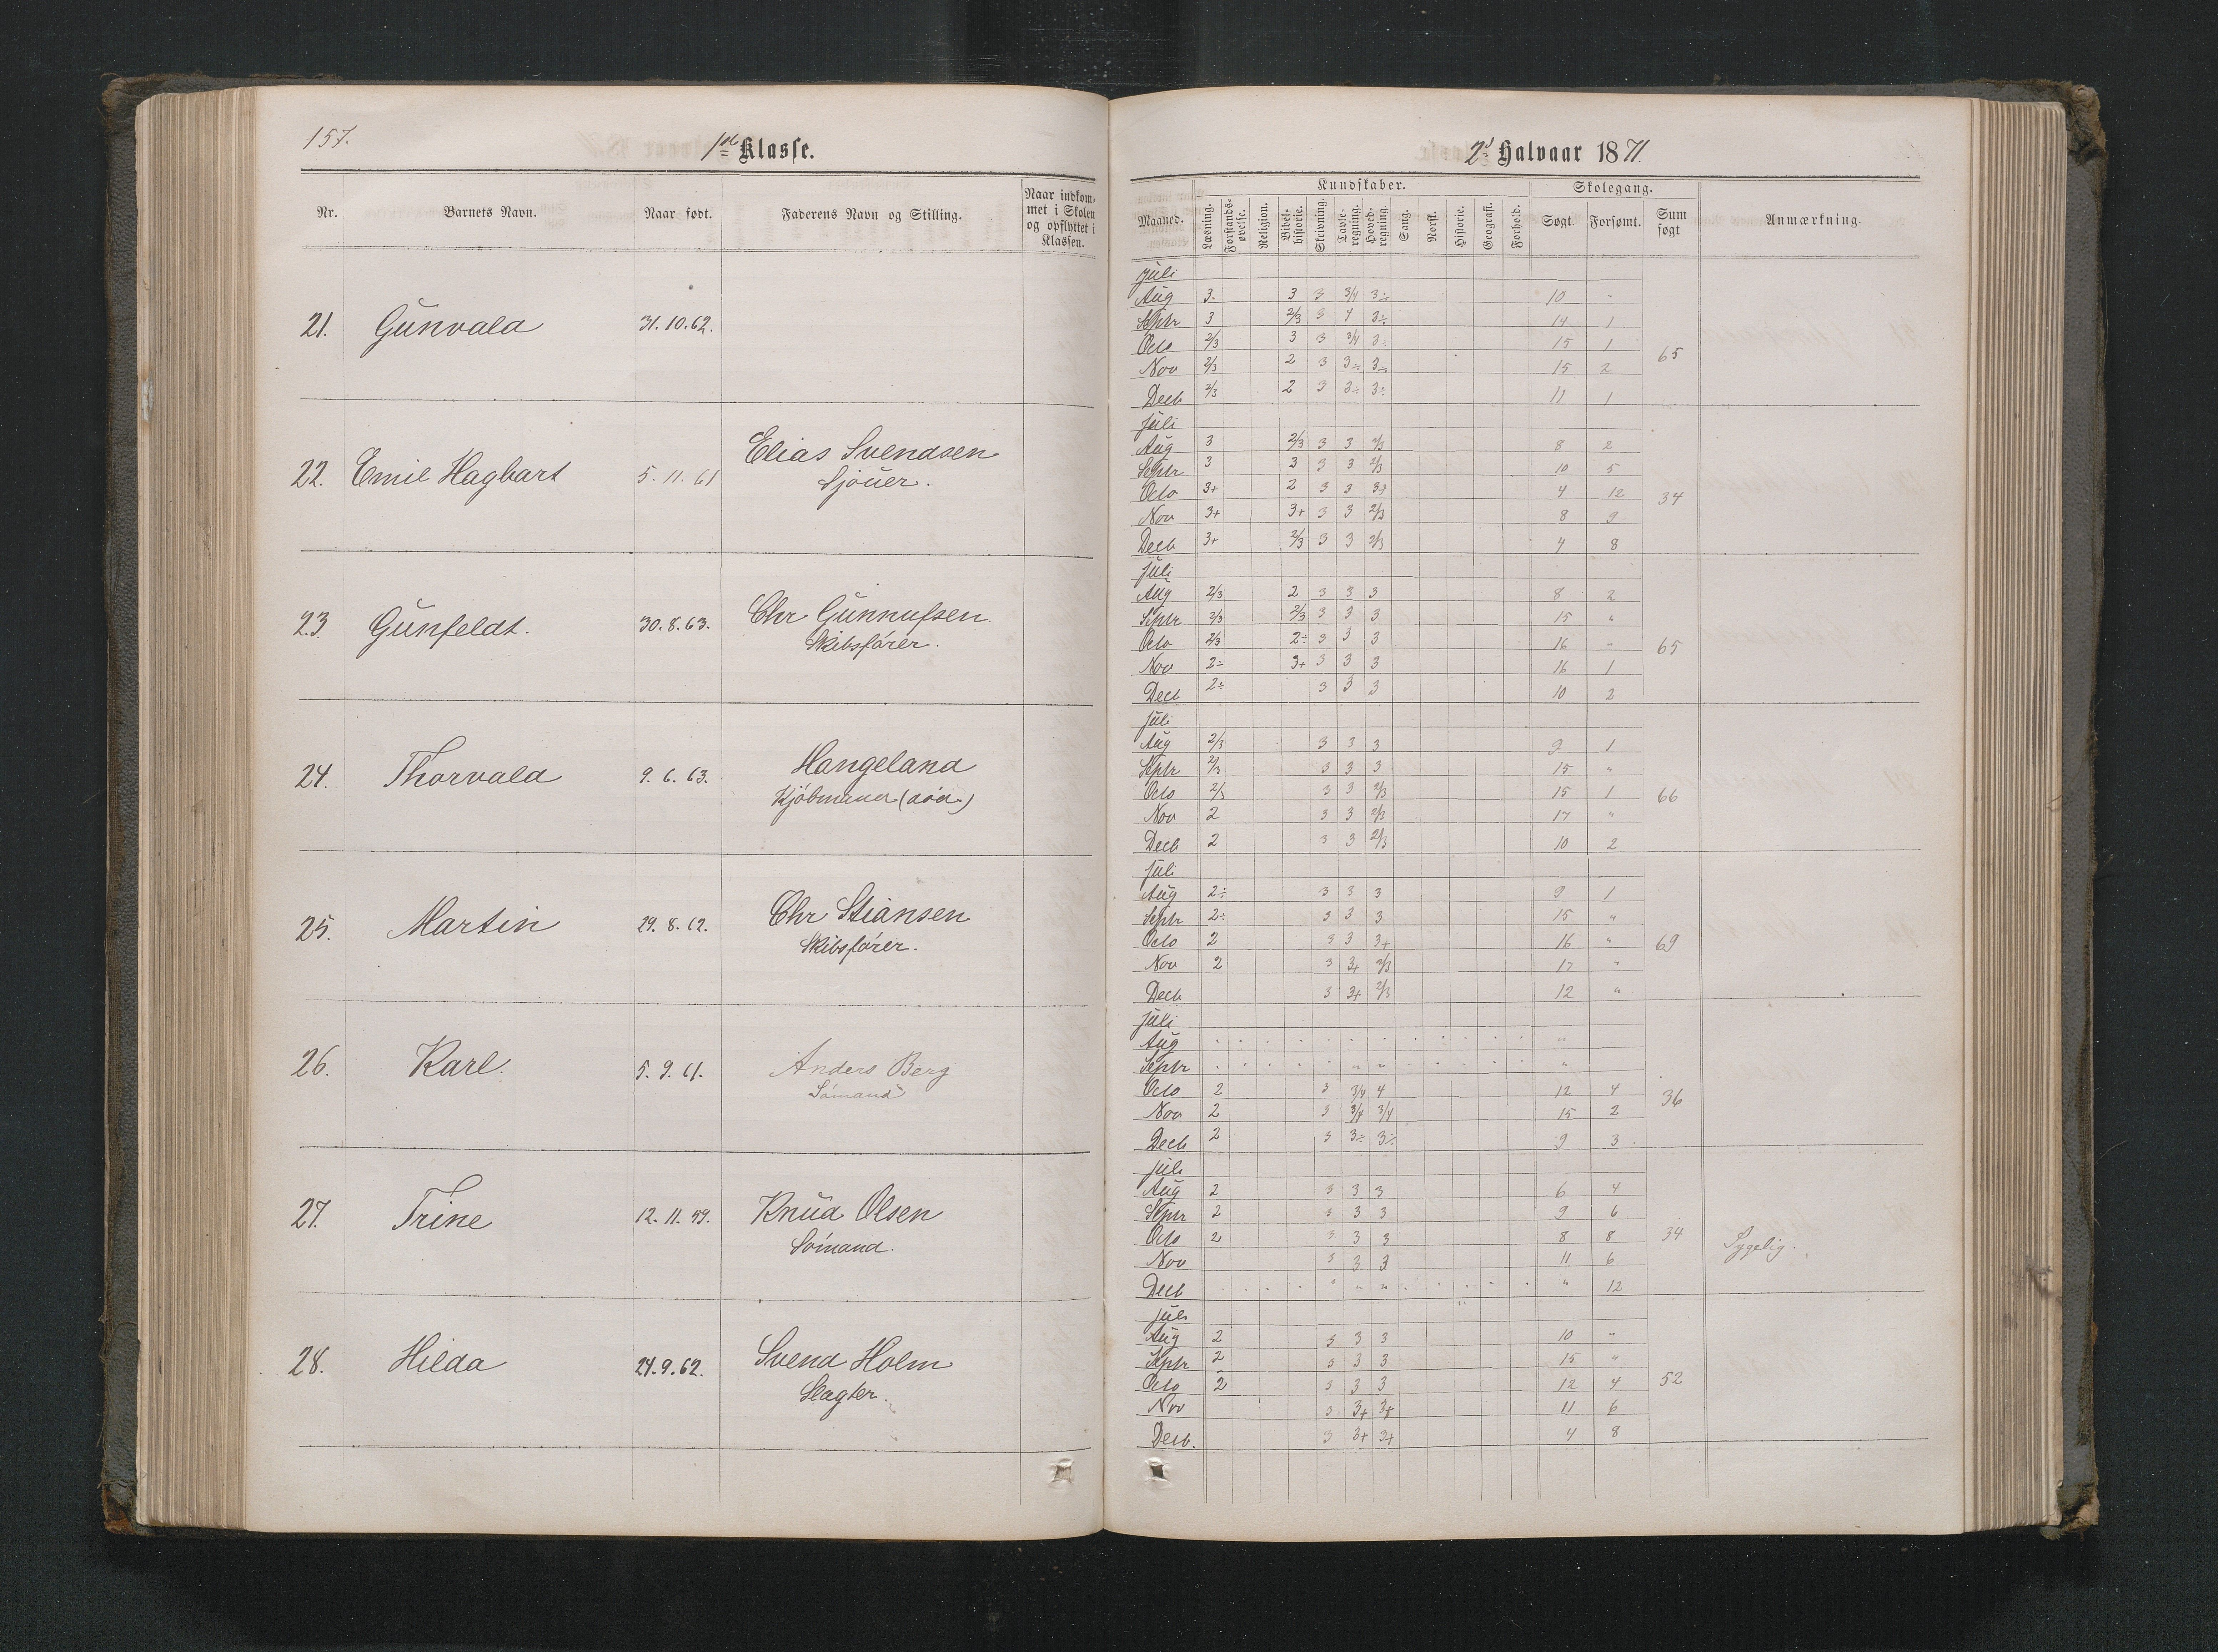 157.
1ste Klasse.
Nr. Barnets Navn. Naar født. Faderens Navn og Stilling. Naar indkommet i Skolen og opflyttet i Klassen.
21. Gunvald 31.10.62.
22. Emil Hagbart 5.11.61 Elias Svendsen
Sjøuer.
23 Gunfeldt. 30.8.63. Chr Gunnufsen
Skibsfører.
24. Thorvald 9.6.63. Hangeland
Kjøbmand (død.)
25. Martin 29.8.62. Chr Stiansen
Skibsfører.
26. Karl. 5.9.61. Anders Berg
Sømand
27. Trine 12.11.59. Knud Olsen
Sømand.
28. Hilda 24.9.62. Svend Holm
Slagter.
2d Halvaar 1871.
Kundskaber. Skolegang.
Maaned. Læsning. Forstandsøvelse. Religion. Bibelhistorie. Skrivning. Tavleregning. Hovedregning. Sang. Norsk. Historie. Geografi. Forhold. Søgt. Forsømt. Sum søgt Anmærkning.
Juli
Aug 3. 3 3 3/4 3÷ 10 "
Septr 3 2/3 3 4 3÷ 14 1
Octo 2/3 3 3 3/4 3÷ 15 1 65
Nov 2/3 2 3 3÷ 3÷ 15 2
Decb 2/3 2 3 3÷ 3÷ 11 1
Juli
Aug 3 2/3 3 3 2/3 8 2
Septr 3 3 3 3 2/3 10 5
Octo 3+ 2 3 3 3+ 4 12 34
Nov 3+ 3+ 3 3 2/3 8 9
Decb 3+ 2/3 3 3 2/3 4 8
Juli
Aug 2/3 2 3 3 3 8 2
Septr 2/3 2/3 3 3 3 15 "
Octo 2/3 2÷ 3 3 3 16 " 65
Nov 2÷ 3+ 3 3 3 16 1
Decb 2÷ 3 3 3 10 2
Juli
Aug 2/3 3 3 3 9 1
Septr 2/3 3 3 3 15 "
Octo 2/3 3 3 2/3 15 1 66
Nov 2 3 3 2/3 17 "
Decb 2 3 3 2/3 10 2
Juli
Aug 2÷ 3 3 3 9 1
Septr 2÷ 3 3 3 15 "
Octo 2 3 3 3+ 16 " 69
Nov 2 3 3+ 2/3 17 "
Decb 3 3+ 2/3 12 "
Juli
Aug "
Septr " " "
Octo 2 3 3/4 4 12 4 36
Nov 2 3 3/4 3/4 15 2
Decb 2 3 3÷ 3÷ 9 3
Juli
Aug 2 3 3 3 6 4
Septr 2 3 3 3 9 6
Octo 2 3 3 3 8 8 34 Sygelig.
Nov 3 3 3 11 6
Decb " " " " 12
Juli
Aug 2 3 3 3 10 "
Septr 2 3 3 3 15 "
Octo 2 3 3 3 12 4 52
Nov 3 3+ 3+ 11 6
Decb. 3 3+ 3+ 4 8